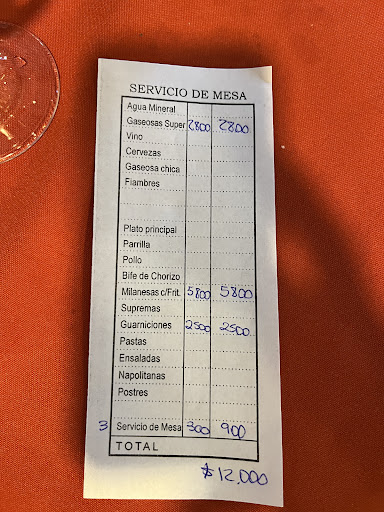 SERVICIO DE MESA
Agua Mineral
Gaseosas Super 2800 2800
Vino
Cervezas
Gaseosa chica
Fiambres
Plato principal
Parrilla
Pollo
Bife de Chorizo
Milanesas c/Frit. 5800 5800
Supremas
Guarniciones 2500 2500
Pastas
Ensaladas
Napolitanas
Postres
3 Servicio de Mesa 300 900
TOTAL
$12,000